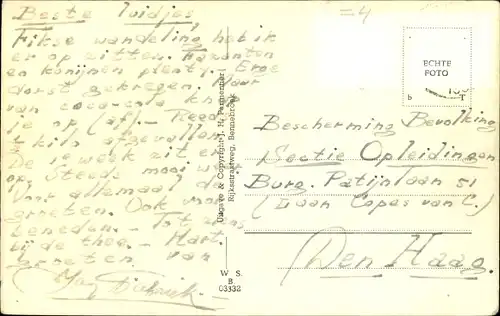 Beste luidjes,
Fikse wandeling heb ik
er op zitten. Fazanten
en konijnen plenty. Erge
dorst gekregen. Maar
van coca-cola knap
je op (af) -
1 kilo afgevallen
De 1e week zit er
op. Steeds mooi weer
Voor allemaal de
groeten. Ook voor
beneden. - Tot ziens
bij de thee. - Hart.
groeten van
Uitgave & Copyright J. N. Parmentier
Rijksstraatweg, Bennebroek
W S.
B.
03332
=4
ECHTE
FOTO
b T
Bescherming Bevolking
Sectie Opleidingen
Burg. Patijnlaan 51
(Laan Copes van C.)
Den Haag.